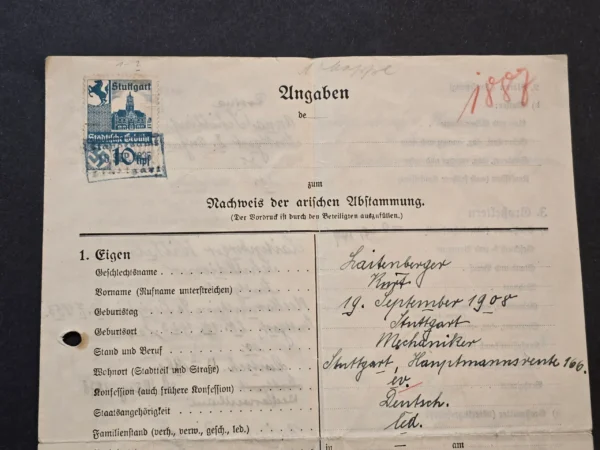 Stuttgart
Städtische Gebühr
10 Rpf
1887
Angaben
de
zum
Nachweis der arischen Abstammung.
(Der Vordruck ist durch den Beteiligten auszufüllen.)
1. Eigen
Geschlechtsname Laitenberger
Vorname (Rufname unterstreichen) Kurt
Geburtstag 19. September 1908
Geburtsort Stuttgart
Stand und Beruf Mechaniker
Wohnort (Stadtteil und Straße) Stuttgart, Hauptmannsreute 166.
Konfession (auch frühere Konfession) ev.
Staatsangehörigkeit Deutsch.
Familienstand (verh., verw., gesch., led.) led.
in — am